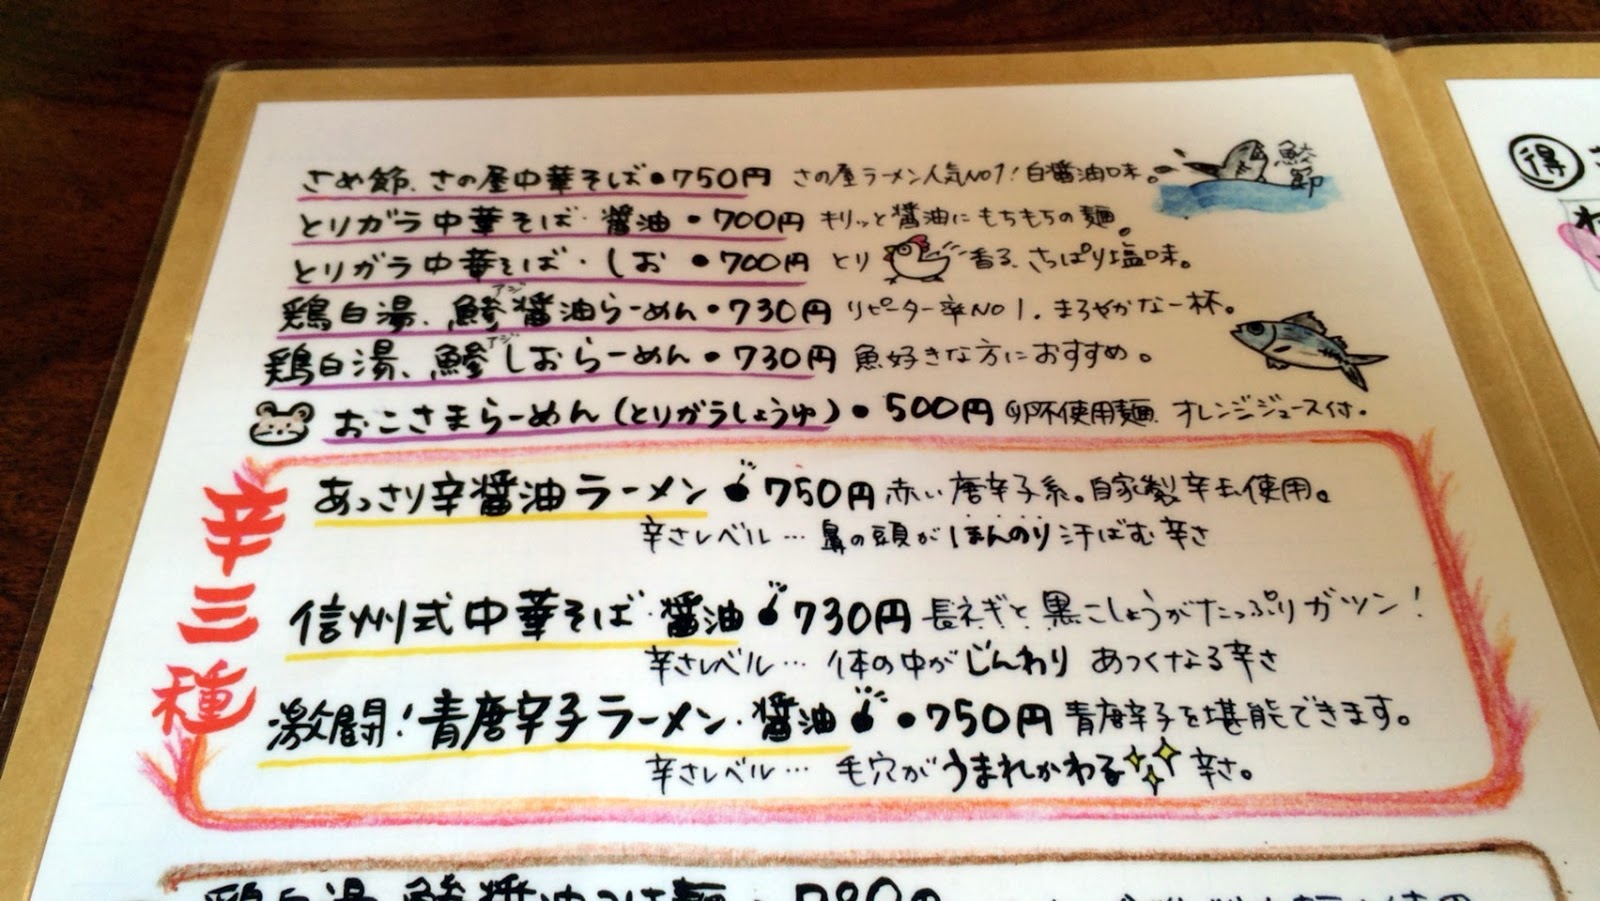 さめ節、さの屋中華そば・750円 さの屋ラーメン人気NO1!白醤油味。
鯵節
とりガラ中華そば・醤油・700円 キリッと醤油にもちもちの麺。
とりガラ中華そば・しお・700円 とり 香る、さっぱり塩味。
鶏白湯、鯵アジ醤油らーめん・730円 リピーター率NO1.まろやかな一杯。
鶏白湯、鯵アジしおらーめん・730円 魚好きな方におすすめ。
おこさまらーめん(とりガラしょうゆ)・500円 卵不使用麺、オレンジジュース付.
辛三種
あっさり辛醤油ラーメン 750円 赤い唐辛子系。自家製辛玉使用。
辛さレベル… 鼻の頭がほんのり汗ばむ辛さ
信州式中華そば・醤油 730円 長ネギと黒こしょうがたっぷりガツン!
辛さレベル… 体の中がじんわりあつくなる辛さ
激闘!青唐辛子ラーメン・醤油・750円 青唐辛子を堪能できます。
辛さレベル… 毛穴がうまれかわる辛さ。
得